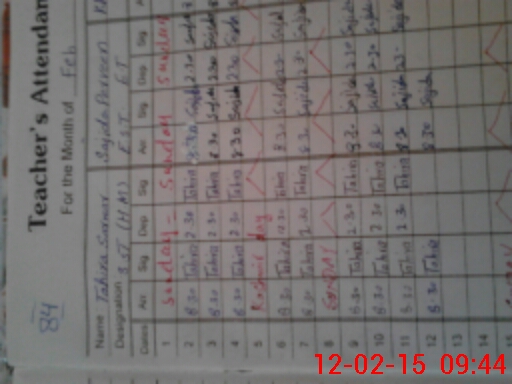 84
Teacher's Attendan
For the Month of Feb
Name Tahira Sarwar Sajida Parveen
Designation S.S.T (H.M) E.S.T
Dates Arr Sig Dep Sig Arr Sig Dep Sig
1 Sunday - Sunday Sunday Sunday
2 8.30 Tahira 2.30 Tahira 8.30 Sajida 2.30 Sajida
3 8.30 Tahira 2.30 Tahira 8.30 Sajida 2.30 Sajida
4 8.30 Tahira 2.30 Tahira 8.30 Sajida 2.30 Sajida
5 Kashmir day
6 8.30 Tahira 12.30 Tahira 8.30 Sajida
7 8.30 Tahira 2.30 Tahira 8.30 Sajida 2.30 Sajida
8 SUNDAY
9 8.30 Tahira 2.30 Tahira 8.30 Sajida 2.30 Sajida
10 8.30 Tahira 2.30 Tahira 8.30 Sajida 2.30 Sajida
11 8.30 Tahira 2.30 Tahira 8.30 Sajida 2.30 Sajida
12 8.30 Tahira 8.30 Sajida
13
14
15
12-02-15 09:44